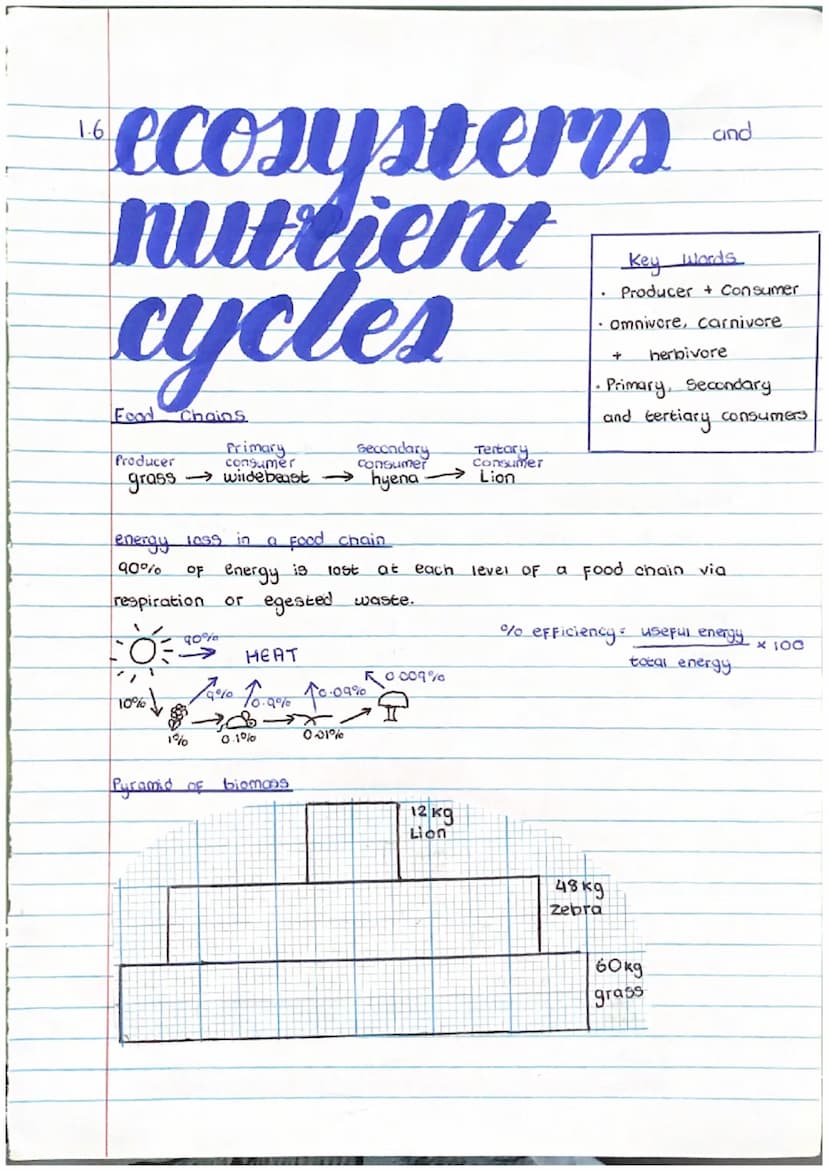 1.6 ecosystems and
nutrient
cycles
Key Words
· Producer + Consumer
· omnivore, carnivore
+ herbivore
· Primary, Secondary
and tertiary consumers
Food Chains
Producer Primary consumer Secondary consumer Tertary Consumer
grass → wildebeast → hyena → Lion
energy loss in a food chain
90% of energy is lost at each level of a food chain via
respiration or egested waste.
% efficiency = useful energy × 100
total energy
90% HEAT
10% 9% 0.9% 0.09% 0.009%
1% 0.1% 0.01%
Pyramid of biomass
12 kg
Lion
48 kg
Zebra
60 kg
grass